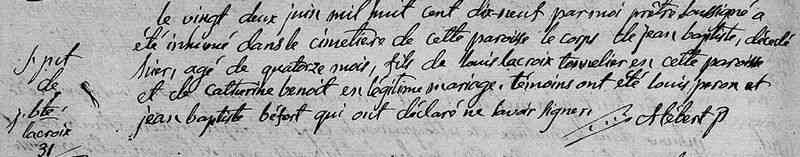 le vingt deux juin mil huit cent dix-neuf par moi prêtre soussigné a
été inhumé dans le cimetière de cette paroisse le corps de jean baptiste, décédé
hier, agé de quatorze mois, fils de louis lacroix tonnelier en cette paroisse
et de Catherine benoit en légitime mariage. témoins ont été louis peron et
jean baptiste béfort qui ont déclaré ne savoir signer.
de
j. bte.
lacroix
31